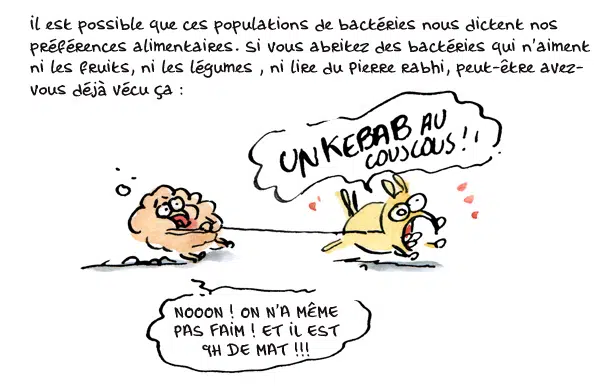 il est possible que ces populations de bactéries nous dictent nos
préférences alimentaires. Si vous abritez des bactéries qui n'aiment
ni les fruits, ni les légumes , ni lire du Pierre Rabhi, peut-être avez-
vous déjà vécu ça :
UN KEBAB AU
COUSCOUS !
NOOON ! ON N'A MÊME
PAS FAIM ! ET IL EST
9H DE MAT !!!